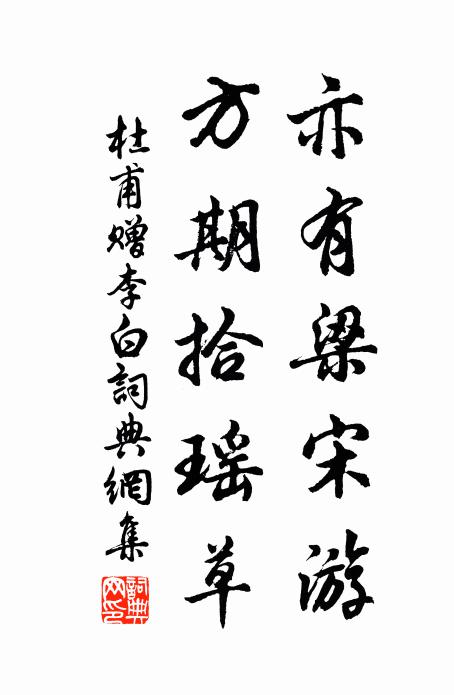 亦有梁宋游
方期拾瑶草
杜甫赠李白詞典網集
詞典网印